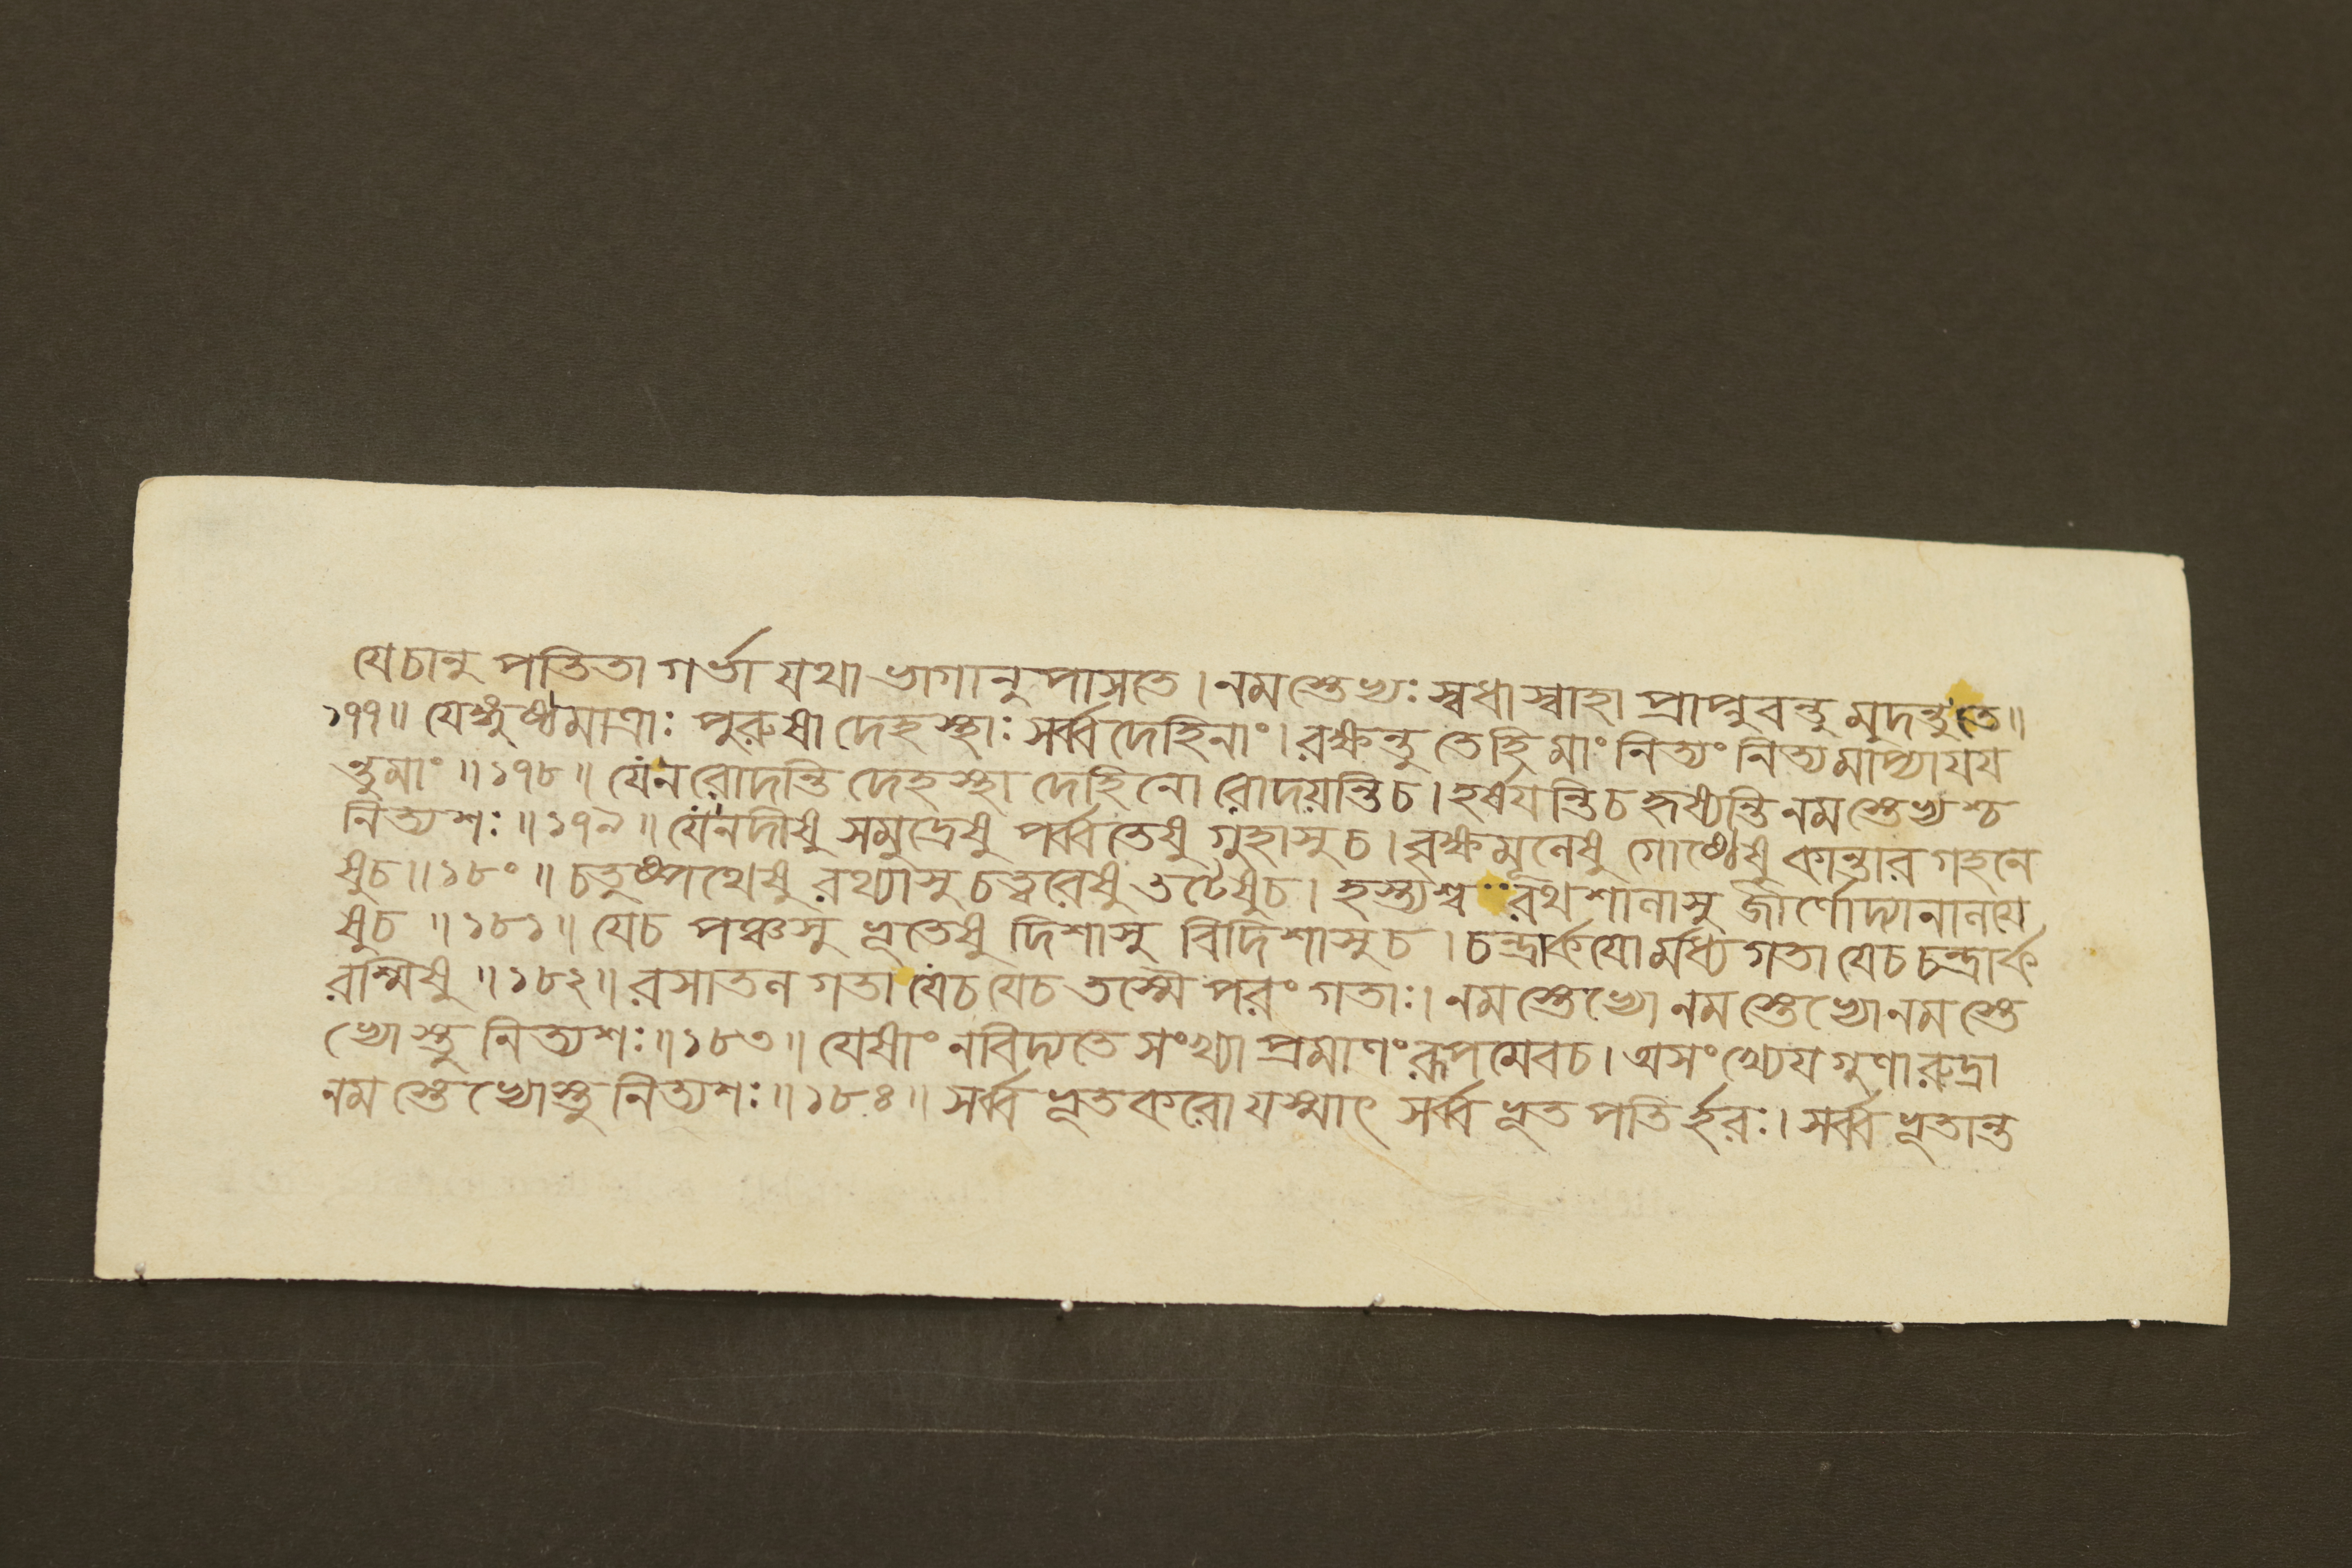 যেচানু পতিতা গর্ভা যথা ভাগানু পাসতে । নম স্তেভ্যঃ স্বধা স্বাহা প্রাপ্নুবন্তু মুদন্তু তে ॥
১৭৭ ॥ যেঙ্গুষ্ঠমাত্রাঃ পুরুষা দেহস্থাঃ সর্ব্ব দেহিনাং । রক্ষন্তু তেহি মাং নিত্যং নিত্যমাপ্যাযয
ন্তুমাং ॥ ১৭৮ ॥ যেনরোদন্তি দেহস্থা দেহিনো রোদয়ন্তিচ । হর্ষযন্তিচ হৃষ্যন্তি নমস্তেভ্যস্তু
নিত্যশঃ ॥ ১৭৯ ॥ যেনদীষু সমুদ্রেষু পর্ব্বতেষু গুহাসু চ । বৃক্ষমূলেষু গোষ্ঠেষু কান্তার গহনে
ষুচ ॥ ১৮০ ॥ চতুষ্পথেষু রথ্যাসু চত্বরেষু তটেষুচ । হস্ত্যশ্ব রথশালাসু র্জীর্ণোদ্যানালযে
ষুচ ॥ ১৮১ ॥ যেচ পঞ্চসু ভূতেষু দিশাসু বিদিশাসুচ । চন্দ্রার্কযোর্মধ্যগতা যেচ চন্দ্রার্ক
রশ্মিষু ॥ ১৮২ ॥ রসাতল গতা যেচ যেচ তস্মৈ পরং গতাঃ । নম স্তেভ্যো নমস্তেভ্যোনম স্তে
ভ্যোস্তু নিত্যশঃ ॥ ১৮৩ ॥ যেষাং নবিদ্যতে সংখ্যা প্রমাণং রূপমেবচ । অসংখ্যেযগুণা রুদ্রা
নম স্তেভ্যোস্তু নিত্যশঃ ॥ ১৮৪ ॥ সর্ব্ব ভূতকরো যস্মাৎ সর্ব্ব ভূত পতির্হরঃ । সর্ব্ব ভূতান্ত